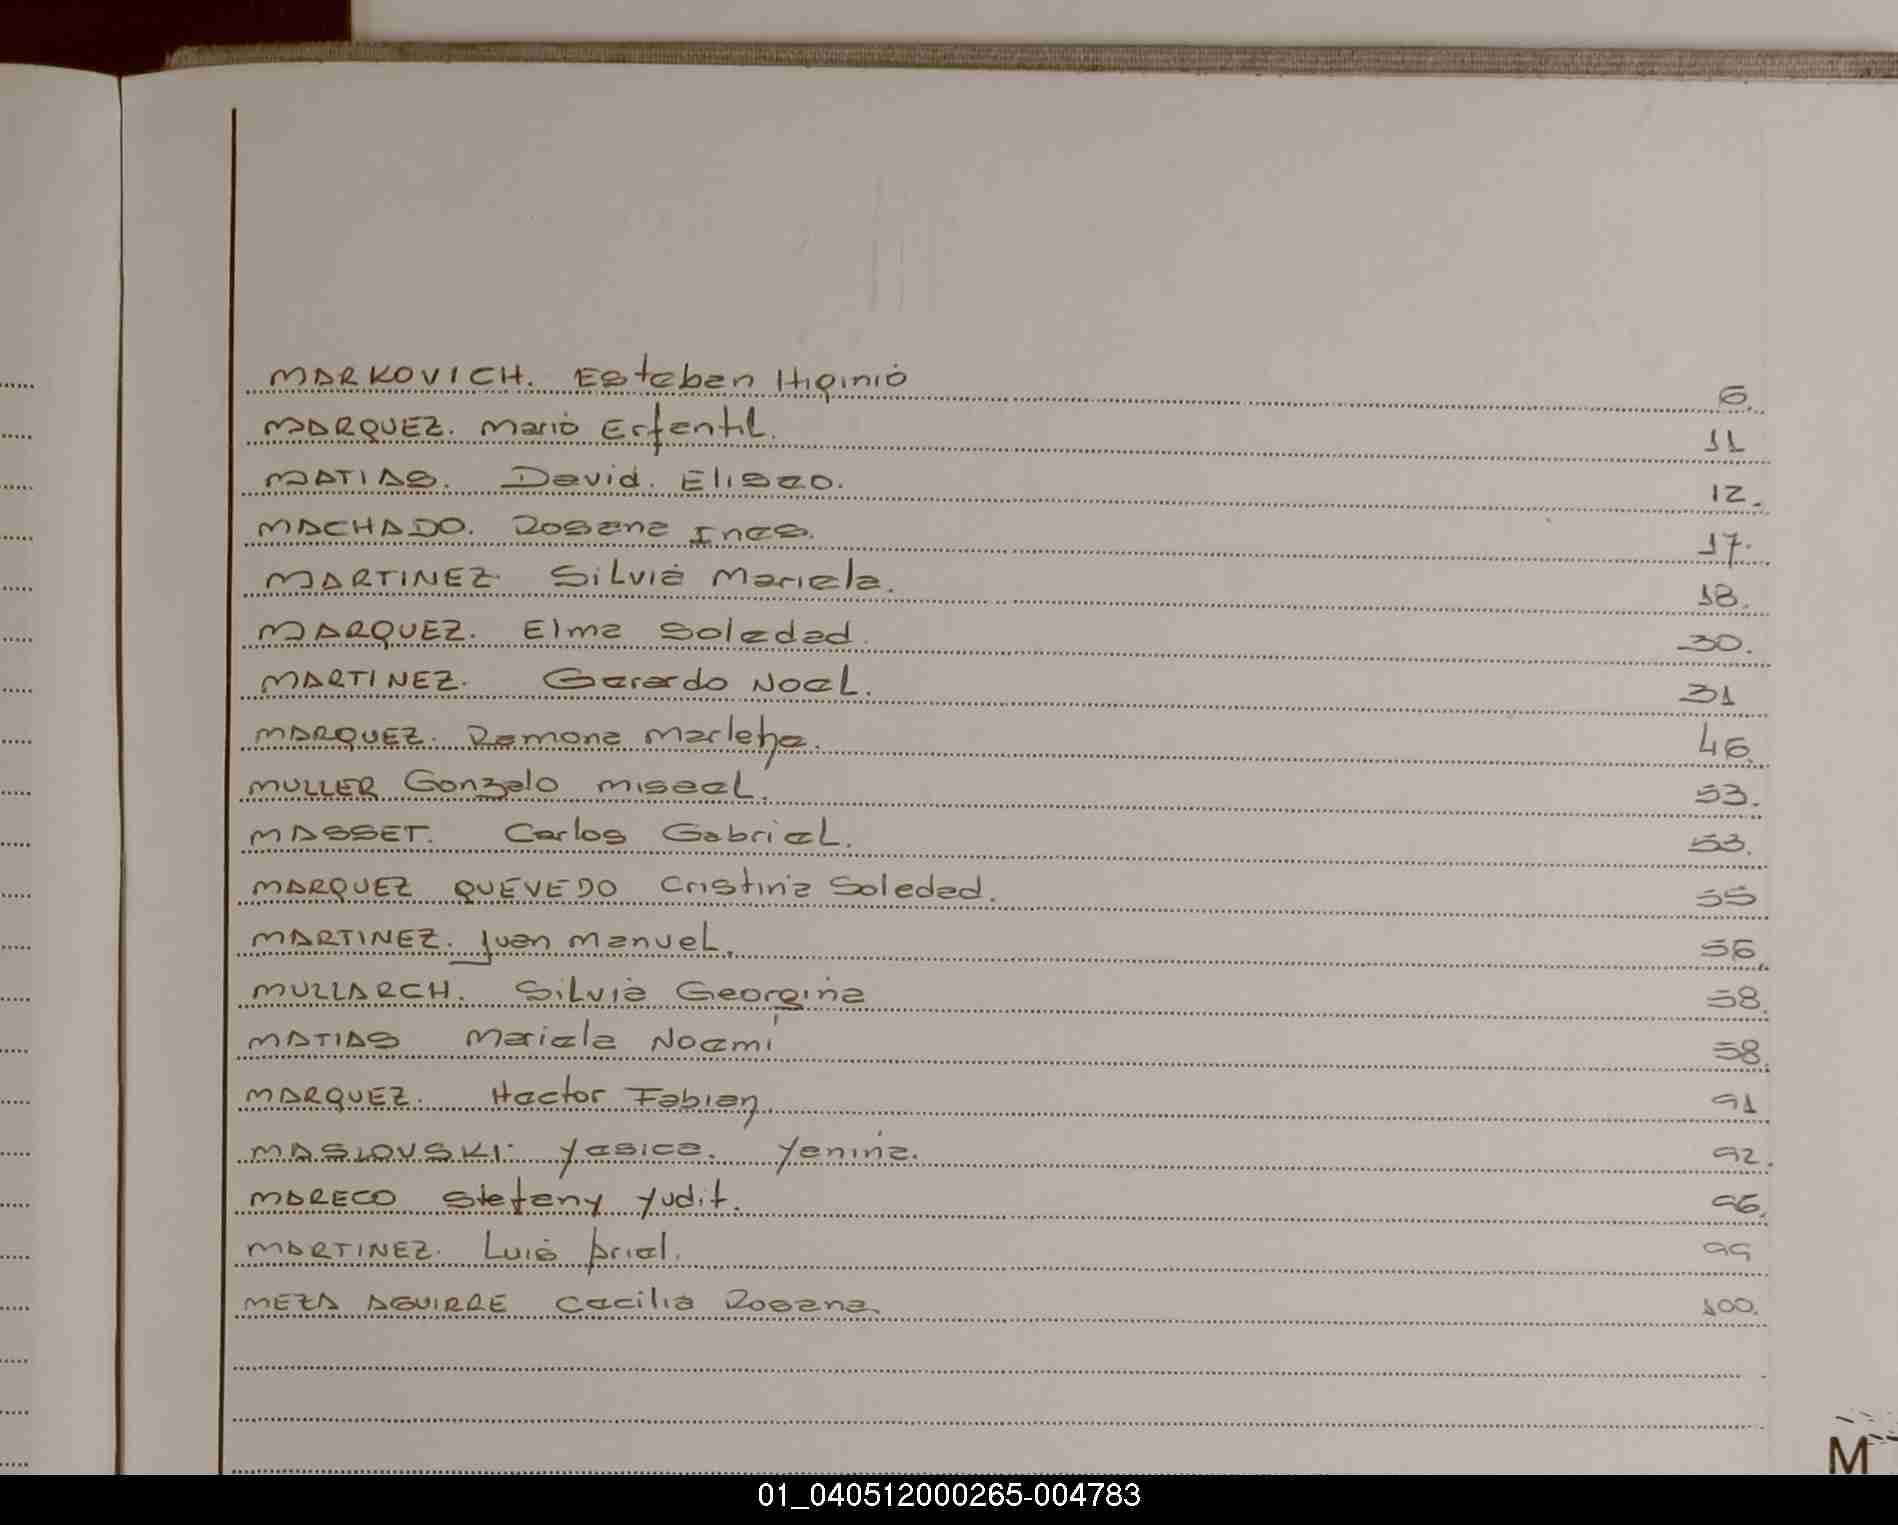 MARKOVICH. Esteban Higinio 6.
MARQUEZ. Mario Erfentil. 11
MATIAS. David. Eliseo. 12.
MACHADO. Rosana Ines. 17.
MARTINEZ. Silvia Mariela. 18.
MARQUEZ. Elma Soledad. 30.
MARTINEZ. Gerardo Noel. 31
MARQUEZ. Ramona Marlene. 46.
MULLER Gonzalo Misael. 53.
MASSET. Carlos Gabriel. 53.
MARQUEZ QUEVEDO Cristina Soledad. 55
MARTINEZ. Juan Manuel. 56.
MULLARCH. Silvia Georgina 58.
MATIAS Mariela Noemí 58.
MARQUEZ. Hector Fabian 91
MASLOVSKI. Yesica. Yenina. 92.
MARECO Stefany Yudit. 96.
MARTINEZ. Luis Ariel. 99
MEZA AGUIRRE Cecilia Rosana. 100.
M
01_040512000265-004783